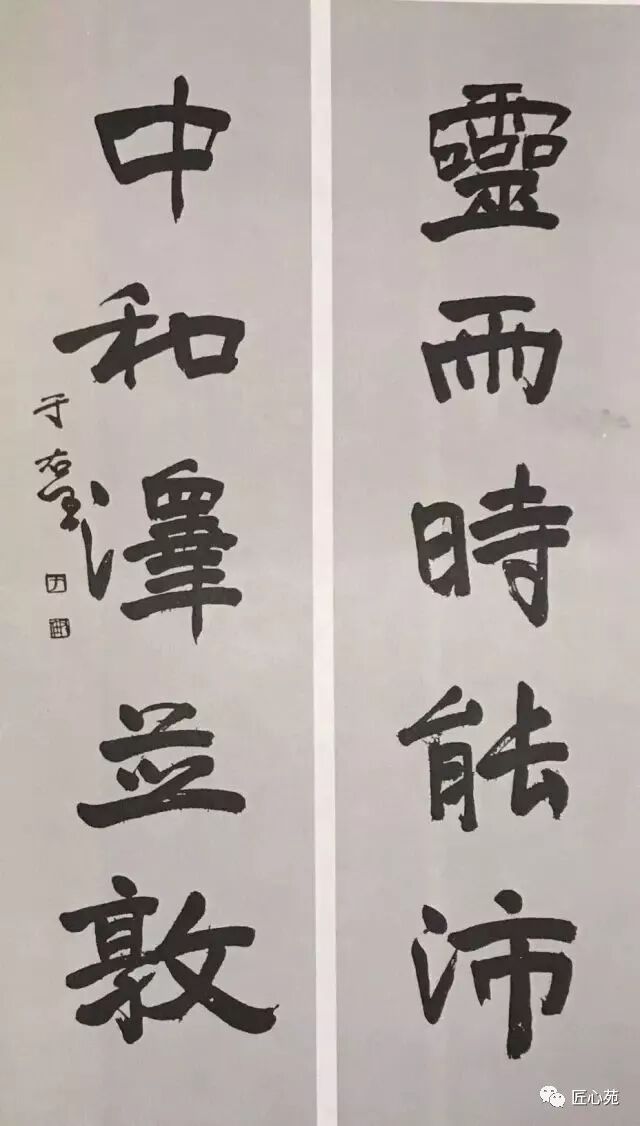 靈雨時能沛
中和澤並敦
于右任
匠心苑